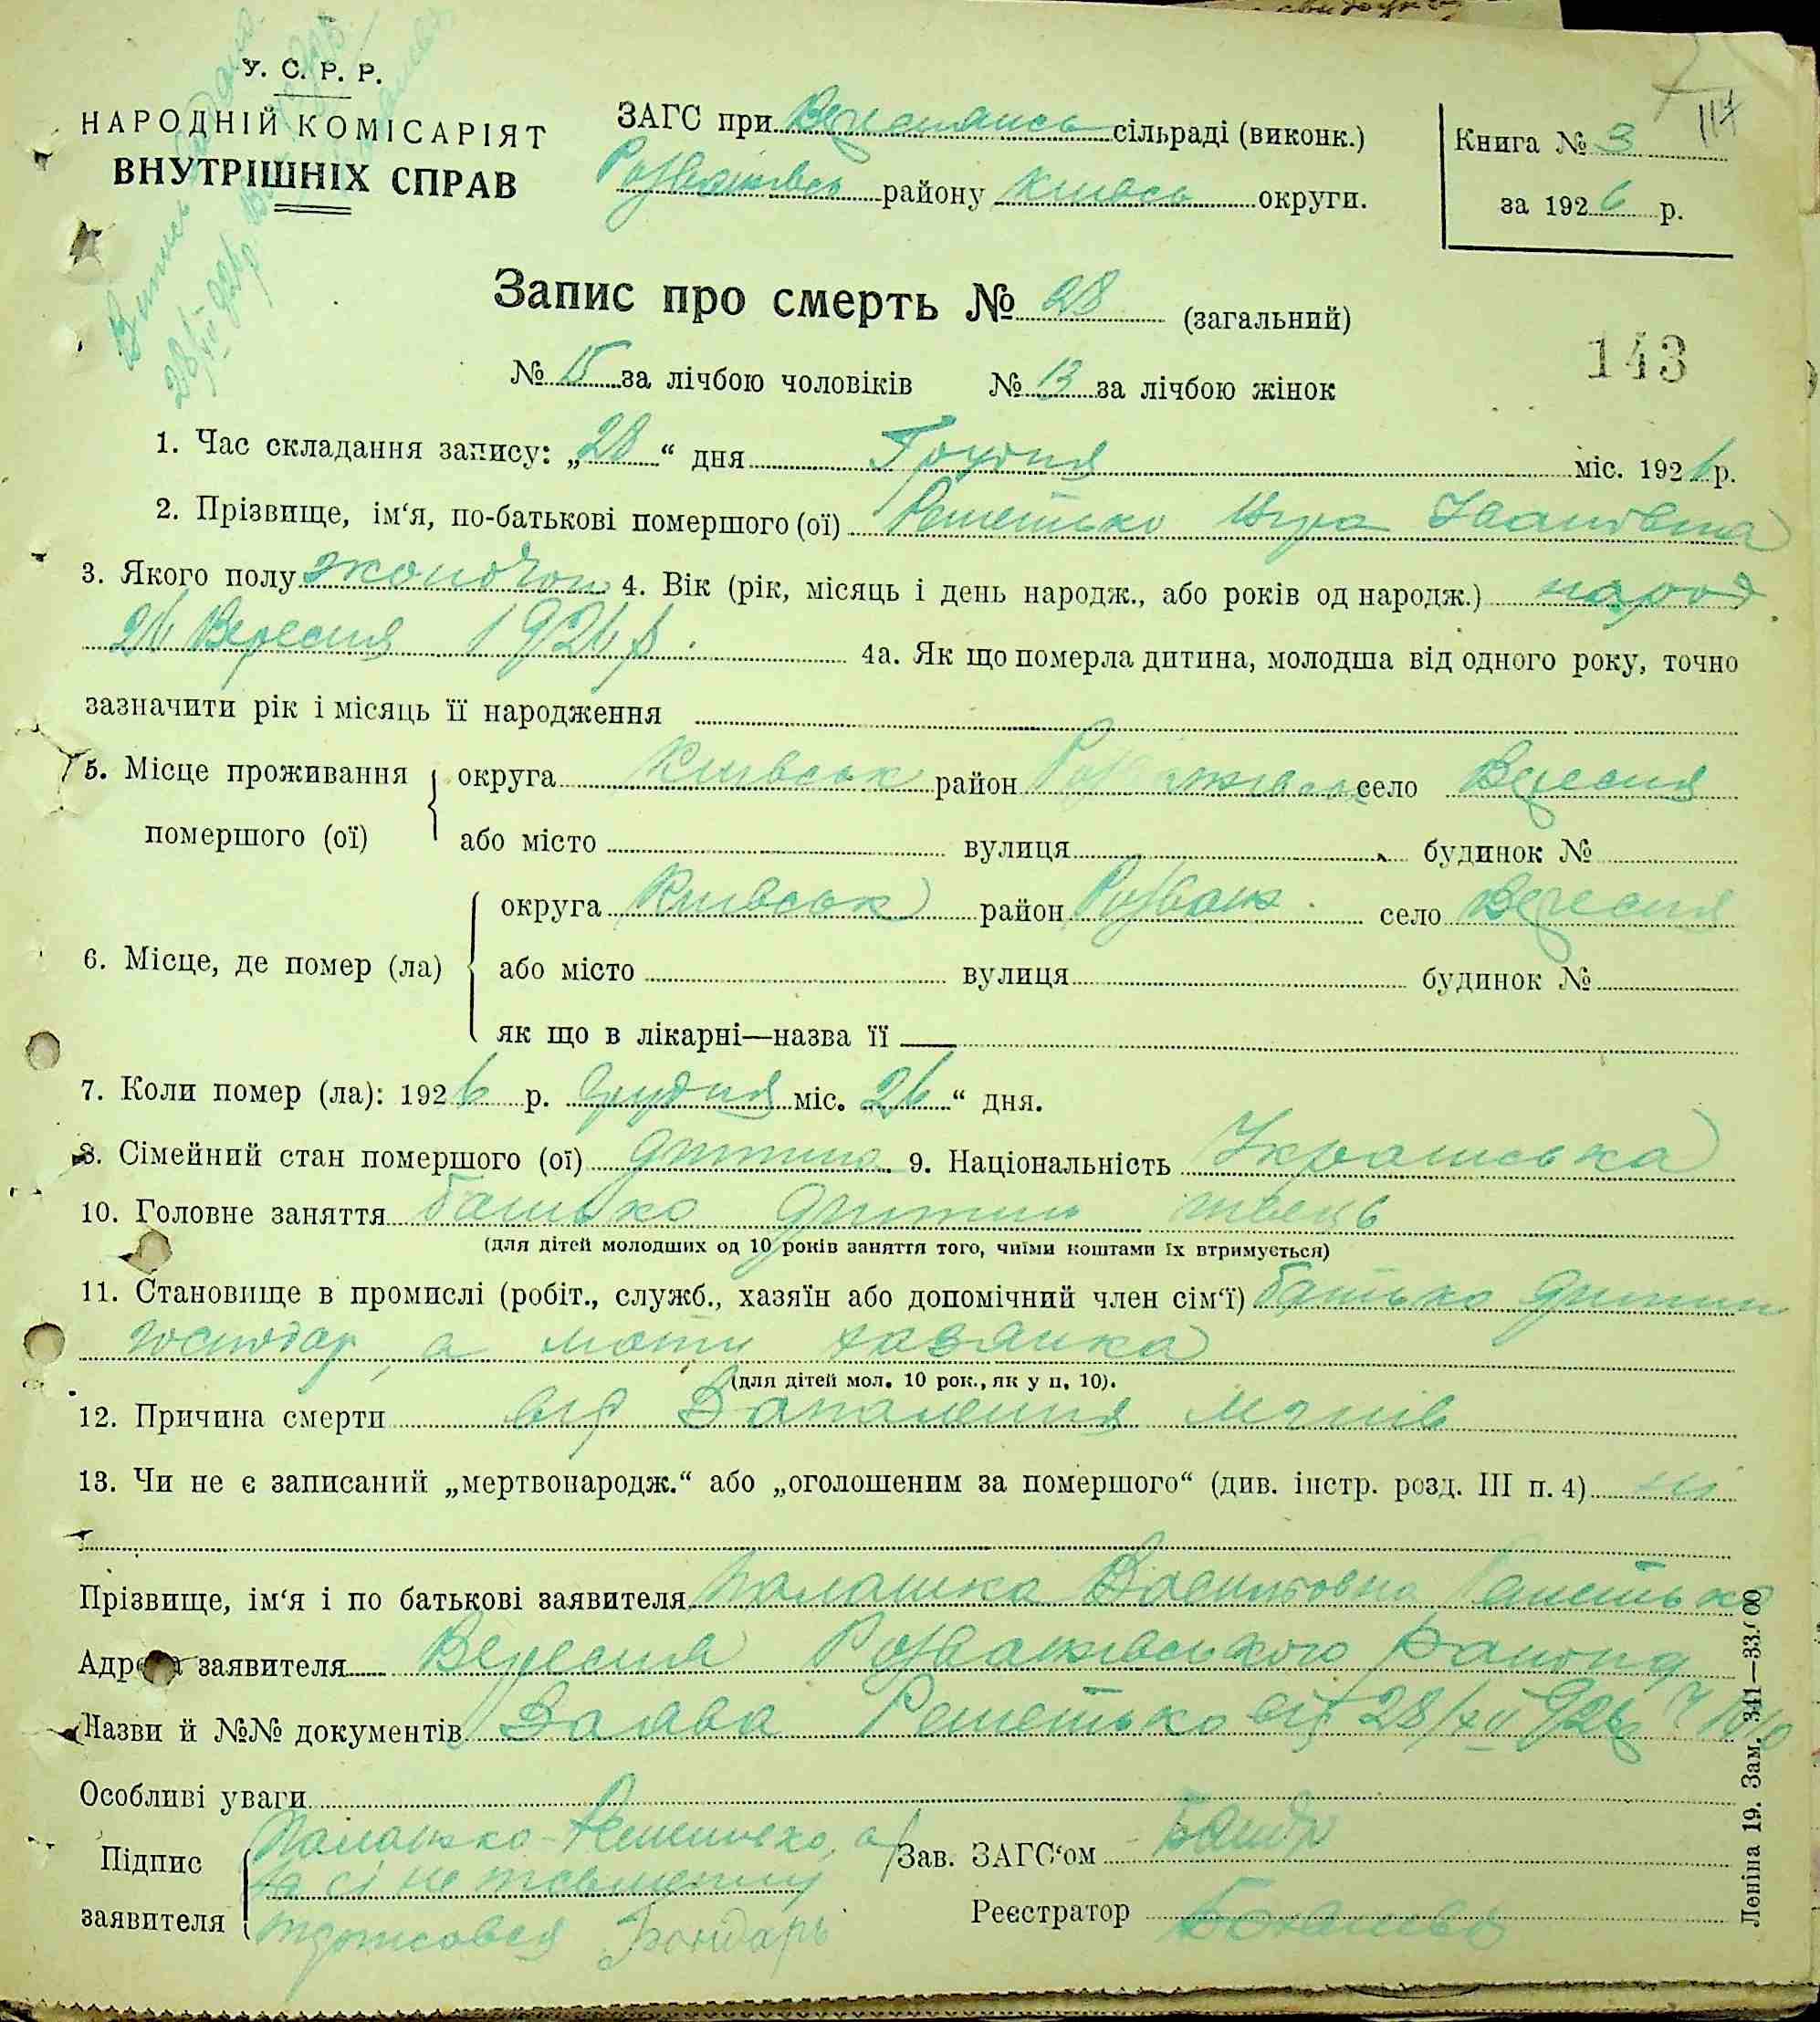 У. С. Р. Р.
НАРОДНІЙ КОМІСАРІЯТ
ВНУТРІШНІХ СПРАВ
ЗАГС при сільраді (виконк.)
району округи.
Книга № 3
за 1926 р.
117
Запис про смерть № 28 (загальний)
№ 15 за лічбою чоловіків № 13 за лічбою жінок
143
1. Час складання запису: „28“ дня Грудня міс. 1926 р.
2. Прізвище, ім‘я, по-батькові помершого (ої) Решетько Іванівна
3. Якого полу жіночого 4. Вік (рік, місяць і день народж., або років од народж.) народ
26 Вересня 1926 р. 4а. Як що померла дитина, молодша від одного року, точно
зазначити рік і місяць її народження
5. Місце проживання помершого (ої) округа Київськ район село Вересня
або місто вулиця будинок №
6. Місце, де помер (ла) округа Київськ район Розваж село Вересня
або місто вулиця будинок №
як що в лікарні—назва її
7. Коли помер (ла): 1926 р. Грудня міс. 26“ дня.
8. Сімейний стан помершого (ої) дитина 9. Національність Українська
10. Головне заняття батько дитини швець
(для дітей молодших од 10 років заняття того, чиїми коштами їх втримується)
11. Становище в промислі (робіт., служб., хазяїн або допомічний член сім‘ї) батько дитини
господар, а мати хазяйка
(для дітей мол. 10 рок., як у п. 10).
12. Причина смерти від Запалення
13. Чи не є записаний „мертвонародж.“ або „оголошеним за помершого“ (див. інстр. розд. III п. 4) ні
Прізвище, ім‘я і по батькові заявителя Палашка Решетько
Адреса заявителя Вересня Розважівського Району
Назви й №№ документів Заява Решетько від 28/XII 926
Особливі уваги
Підпис заявителя Палажка Решетько, а
за її не
Бондарь
Зав. ЗАГС‘ом
Реєстратор
Леніна 19. Зам. 341—33.000